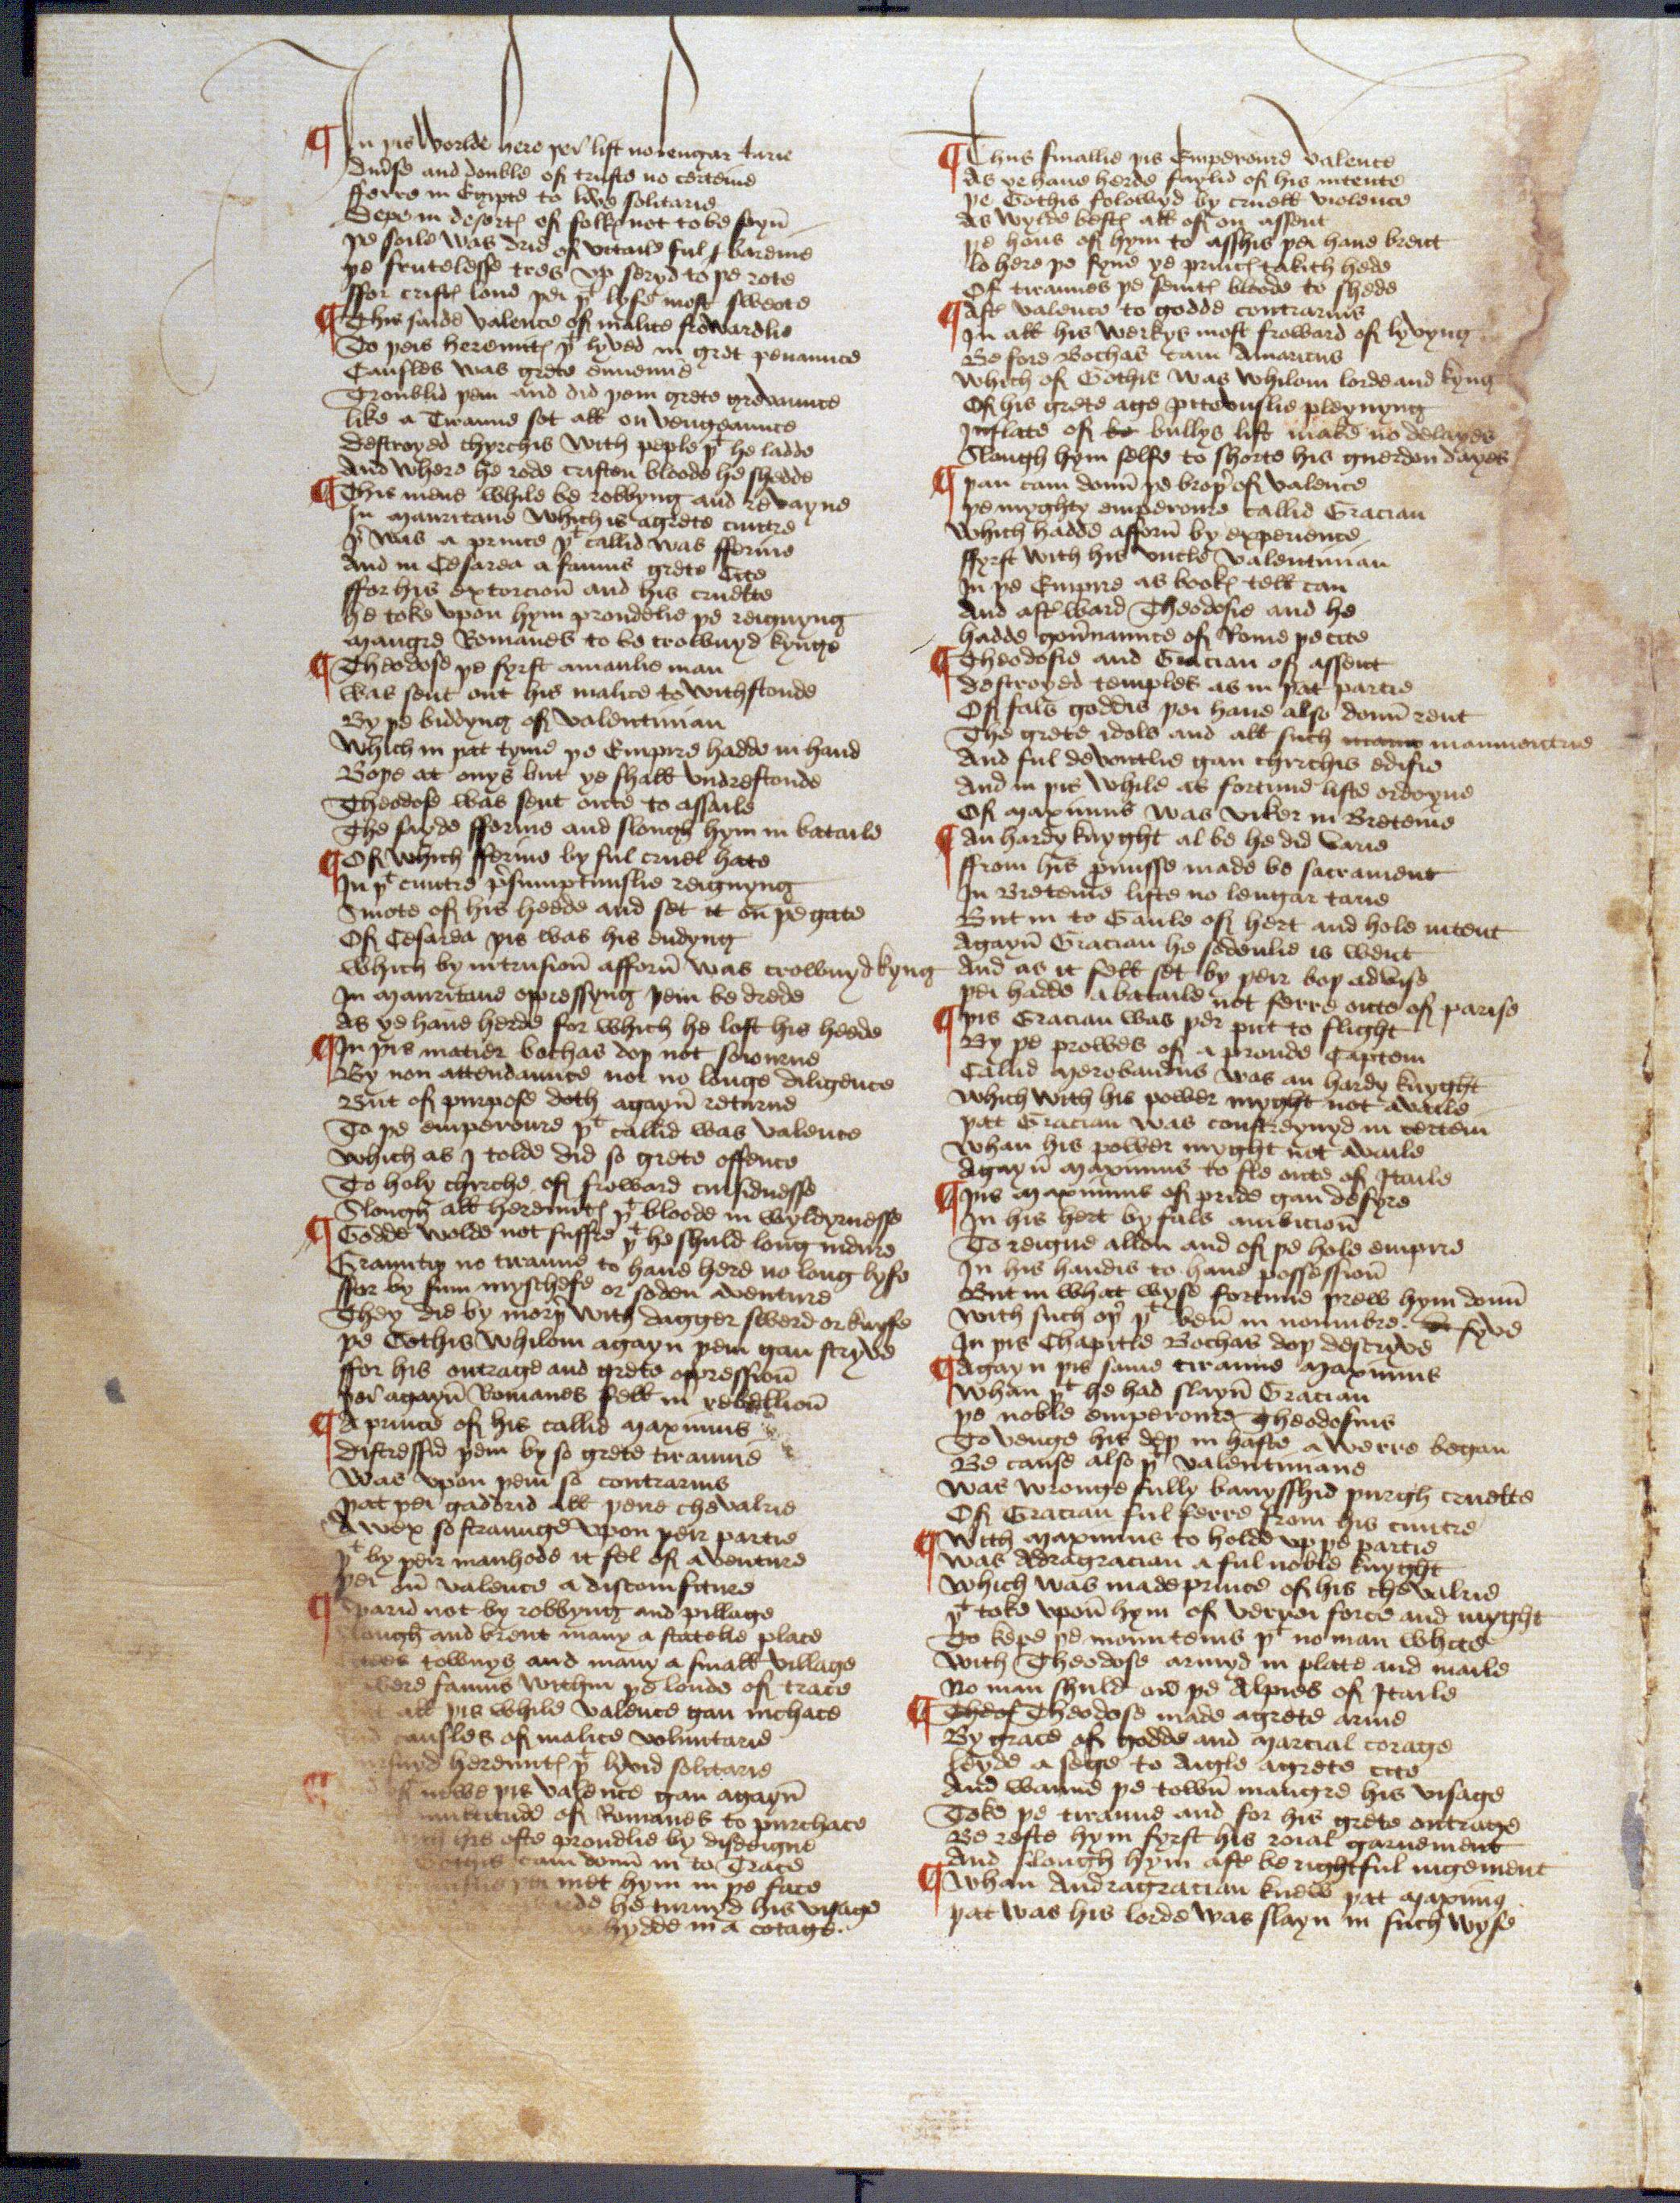 ¶ In þis Worlde here þei list no lengar tarie
Diuerse and double of truste no certeine
fferre in Egipte to live solitarie
Depe in desertꝭ of folke not to be seyn̄
þe soile was drie of vitaile ful bareine
þe fruteles̄se trees vp seryd to þe rote
ffor cristꝭ loue þei þᵗ lyfe most sweote
¶ This saide Valence of malice frowardlie
To þeis heremitꝭ þᵗ lyved in gret penaunce
Causles was grete ennemie
Troublid þem and did þem grete grevaunce
like a Tiraune set all on vengeaunce
Destroyed chyrchis with peple þᵗ he ladde
And where he rode cristen bloode he shedde
¶ This mene while be robbyng and revayne
In Mauritane which is a grete cuntre
þʳ was a prince þᵗ callid was fferine
And in Cesarea a famus grete Cite
ffor his extorcion̄ and his cruelte
he toke vpon hym proudelie þe reignyng
Maugre Romanes to be crownyd kynge
¶ Theodose þe fyrst a manlie man
was sent out his malice to withstonde
By þe biddyng of Valentinian
Which in þat tyme þe Empire hadde in hand
Boþe at onys but ye shall vndrestonde
Theodose was sent oute to assaile
The sayde fferine and slough hym in bataile
¶ Of which fferine by ful cruel hate
In þᵗ cuntre p̄sumptuuslie reignyng
Smote of his hedde and set it on̄ þe gate
Of Cesarea þis was his endyng
which by intrusion̄ afforn̄ was crownyd kyng
In Mauritane oppressyng þem be drede
As ye haue herde for which he lost his heede
¶ In þis matier bochas doþ not soiourne
By non attendaunce nor no longe diligence
But of purpose doth agayn̄ returne
To þe emperoure þᵗ callid was Valence
which as I tolde did so grete offence
To holy chirche of froward cursidnesse
Slough all heremitꝭ þᵗ bloode in wyldyrnesse
¶ Godde wolde not suffre þᵗ he shuld long indure
Grauntiþ no tiraune to haue here no long lyfe
ffor by sum myschefe or soden aventure
They die by morþʳ with dagger swerd or knyfe
þe Gothis whilom agayn þem gan stryve
ffor his outrage and grete oppression̄
þei agayn̄ Romanes fell in rebellion̄
¶ A prince of his callid Maximus
distressid þem by so grete tirannie
Was vpon þem so contrarius
þat þei gaddrid all þeire chevalrie
A wex so straunge vpon þeir partie
þᵗ by þeir manhode it fel of aventure
þei on̄ valence a discomfiture
¶ Sparid not by robbyng and pillage
Slough and brent many a statelie place
townys and many a small village
were famus within þe londe of trace
all þis while Valence gan inchace
And causles of malice voluntarie
heremitꝭ þᵗ lyvid solitarie
¶ of newe þis Valence gan agayn̄
multitude of Romanes to purchace
with his oste proudlie by disdeigne
Gothis cam doun̄ in to Trace
þei met hym in þe face
he turnyd his visage
hydde in a cotage.
¶ Thus finallie þis Emperoure Valence
As ye haue herde faylid of his intente
þe Gothis folowyd by cruell violence
As wylde bestꝭ all of on assent
þe hous of hym to asshis þei haue brent
lo here þe fyne ye princꝭ takith hede
Of tirannes þe seintꝭ bloode to shede
¶ Aftꝭ valence to godde contrarius
In all his werkys most froward of lyvyng
Be fore Bochas cam Amaricus
which of Gothis was whilom lorde and kyng
Of his grete age piteouslie pleynyng
Inflate of be bullys list make no delayes
Slough hym selfe to shorte his guerdon dayes
¶ þan cam doun̄ þe broþʳ of valence
þe myghty emperoure callid Gracian
Which hadde afforn̄ by experience
ffyrst with his vncle Valentinian
In þe Empire as bookꝭ tell can
And aftꝭ ward Theodosie and he
hadde gou̾naunce of Rome þe cite
¶ Theodosie and Gracian of assent
destroyed temples as in þat partie
Of fals goddis þei haue also doun̄ rent
The grete idols and all such maumentrie
And ful devoutlie gan chirchis edifie
And in þis while as fortune liste ordeyne
Of Maximus was viker in Breteine
¶ An hardy knyght al be he did varie
ffrom his p̱misse made be sacrament
In Breteine liste no lengar tarie
But in to Gaule of hert and hole intent
Agayn̄ Gracian he sodenlie is went
And as it fell set by þeir boþ advise
þei hadde a bataile not ferre oute of parise
¶ þis Gracian was þer put to flight
By þe prowes of a proude Captein
Callid Merobaudus was an hardy knyght
Which with his power myght not availe
þat Gracian was constreynyd in certein
Whan his power myght not availe
Agayn̄ Maximus to fle oute of Itaile
¶ þis Maximus of pride gan desyre
In his hert by fals ambicion̄
To reigne allon and of þe hole empire
In his handis to haue possession̄
But in what wyse fortune þrew hym doun̄
With such oþʳ þᵗ ben̄ in noumbre fyve
In þis Chapitle Bochas doþ descryve
¶ Agayn þis same tiraune Maximus
Whan þᵗ he had slayn̄ Gracian
þe noble emperoure Theodosius
To venge his deþ in haste a werre began
Be cause also þᵗ Valentiniane
Was wrongefully banysshid þurgh cruelte
Of Gracian ful ferre from his cuntre
¶ With Maximus to holde vp þe partie
Was Adragracian a ful noble knyght
Which was made prince of his chevalrie
þᵗ toke vpon̄ hym of verrei force and myght
To kepe þe mounteins þᵗ no man white
With Theodose armyd in plate and maile
No man shuld ou̾ þe Alpies of Itaile
¶ Theof Theodose made a grete arme
By grace of godde and marcial corage
leyde a sege to Aigle a grete cite
And wanne þe town̄ maugre his visage
Toke þe tiraune and for his grete outrage
Be refte hym fyrst his roial garnement
And slough hym aftꝭ be rightful iugement
¶ Whan Andragracian knew þat Maximus
þat was his lorde was slayn in such wyse